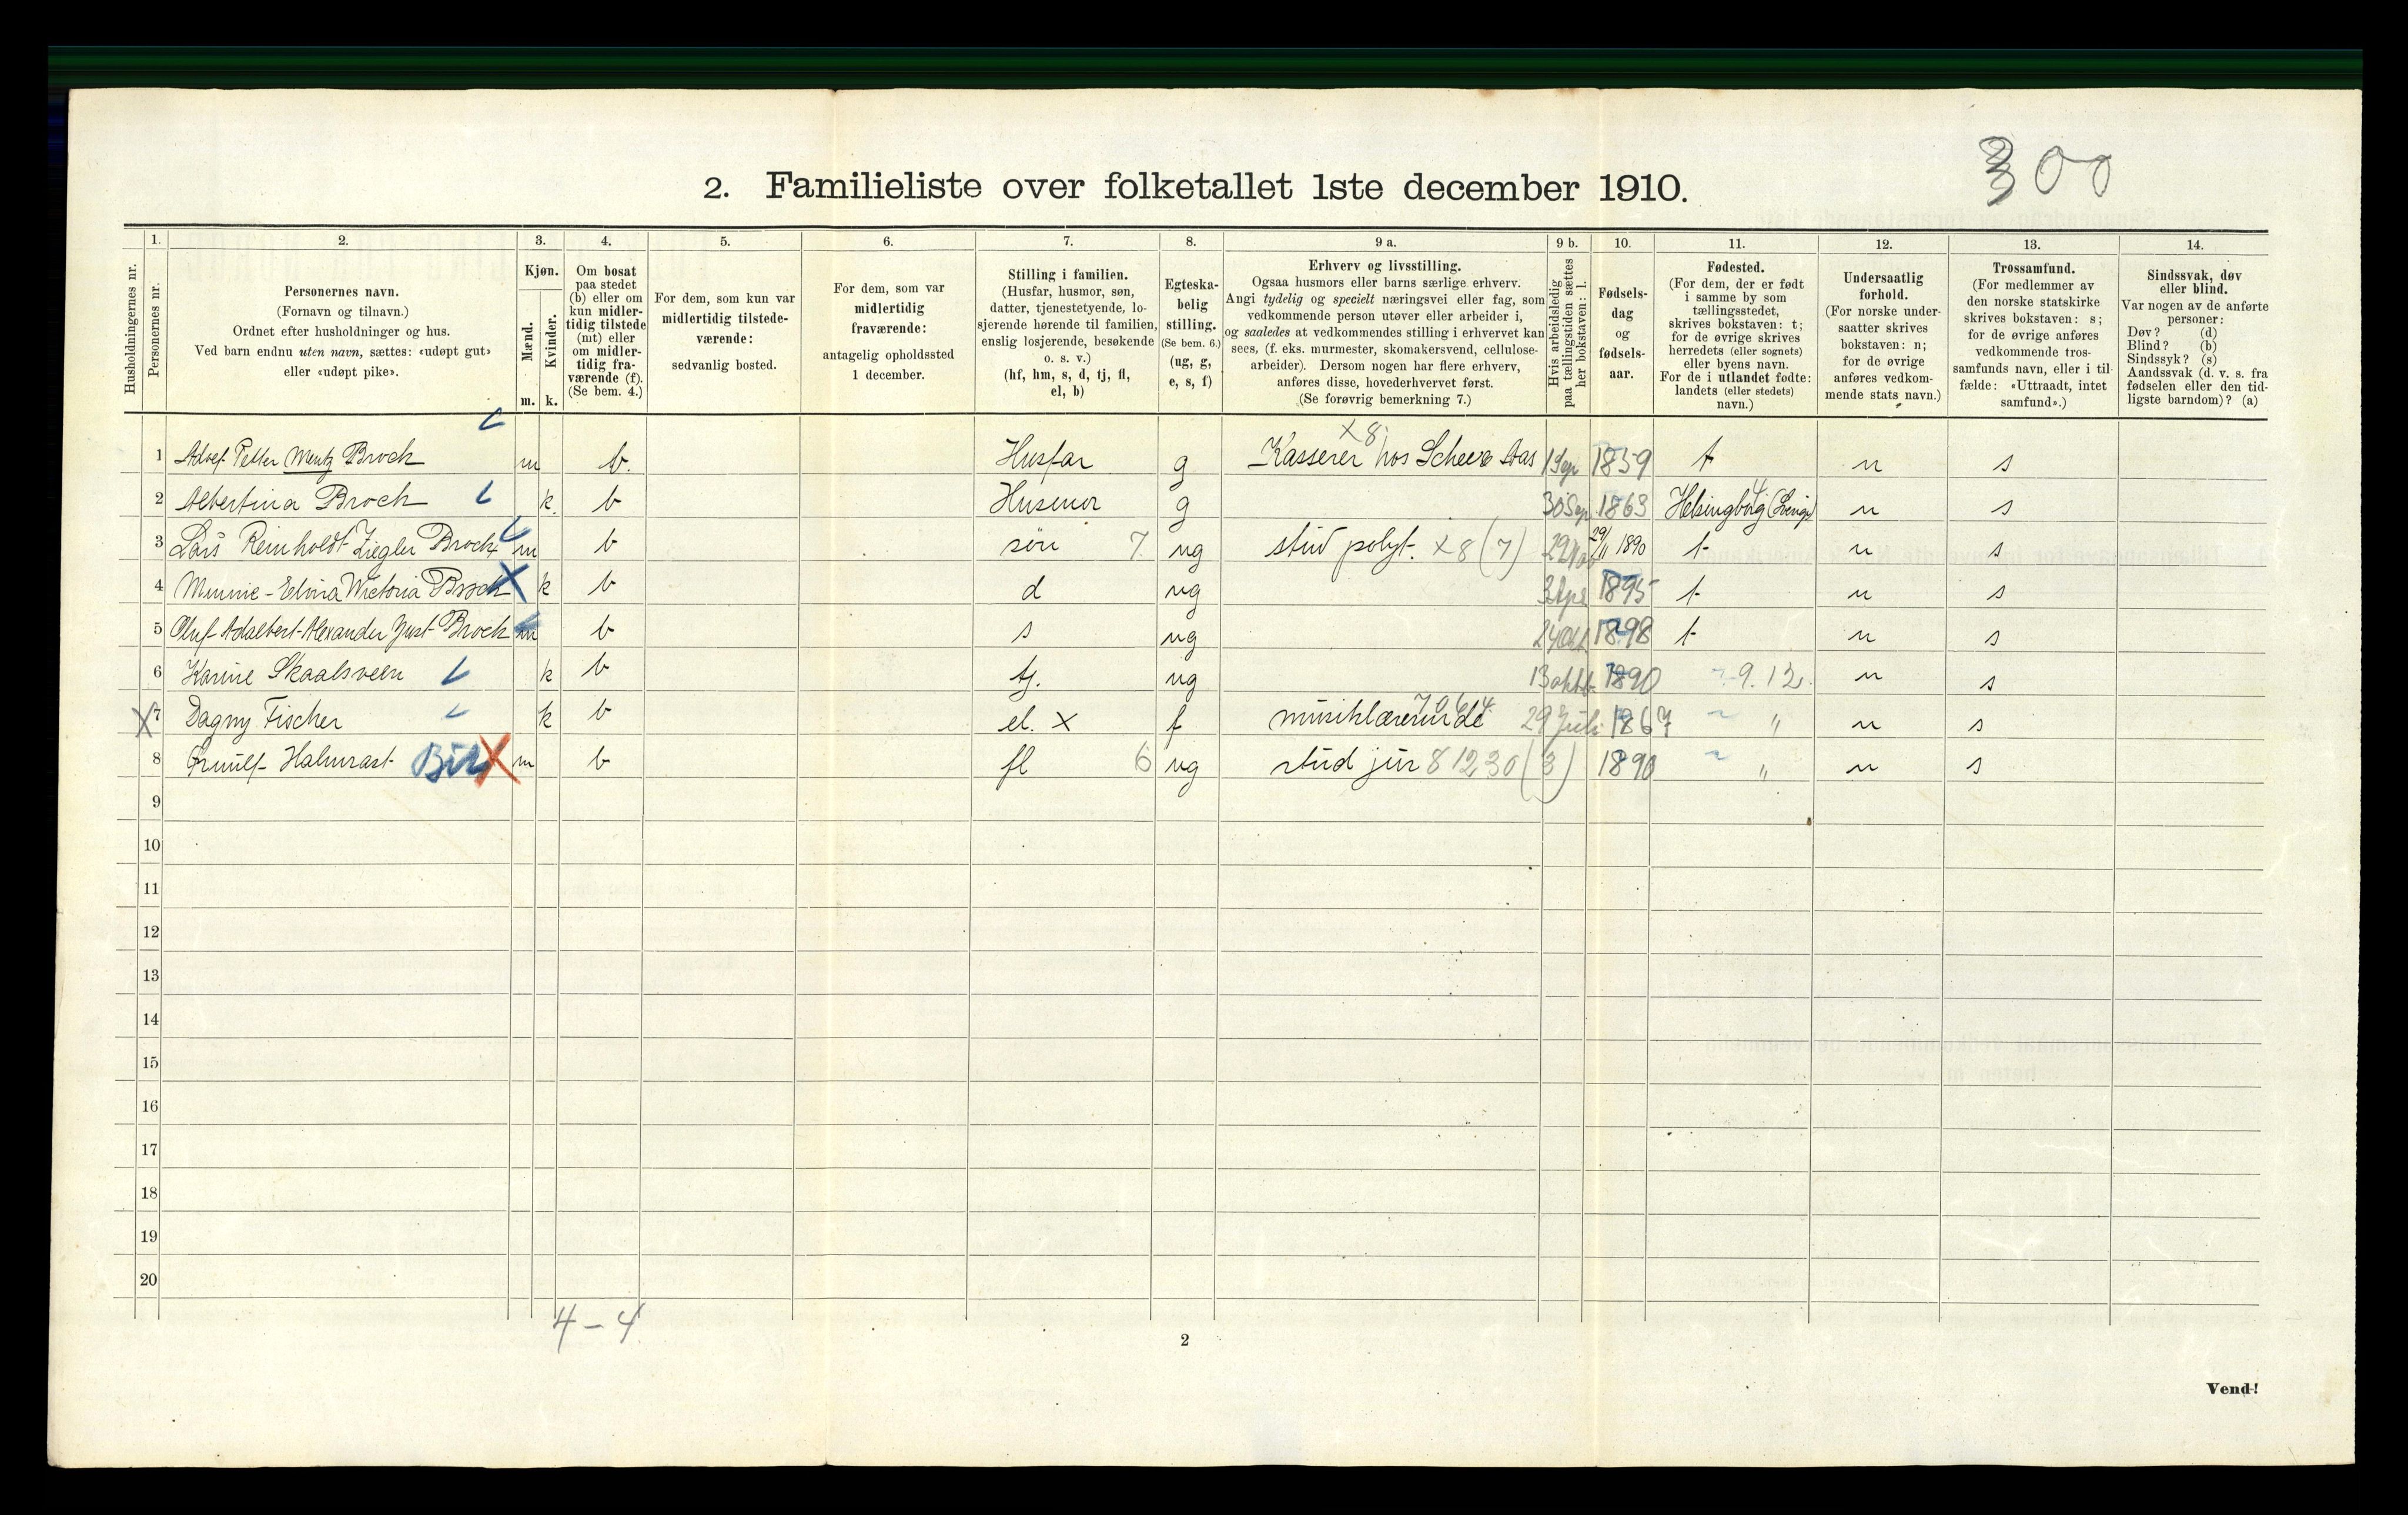 300
2. Familieliste over folketallet 1ste december 1910.
1. 2. 3. 4. 5. 6. 7. 8. 9 a. 9 b. 10. 11. 12. 13. 14.
Husholdningernes nr.
Personernes nr.
Personernes navn.
(Fornavn og tilnavn.)
Ordnet efter husholdninger og hus.
Ved barn endnu uten navn, sættes: «udøpt gut»
eller «udøpt pike».
Kjøn.
Mænd.
Kvinder.
m. k.
Om bosat
paa stedet
(b) eller om
kun midler-
tidig tilstede
(mt) eller
om midler-
tidig fra-
værende (f).
(Se bem. 4.)
For dem, som kun var
midlertidig tilstede-
værende:
sedvanlig bosted.
For dem, som var
midlertidig
fraværende:
antagelig opholdssted
1 december.
Stilling i familien.
(Husfar, husmor, søn,
datter, tjenestetyende, lo-
sjerende hørende til familien,
enslig losjerende, besøkende
o. s. v.)
(hf, hm, s, d, tj, fl,
el, b)
Egteska-
belig
stilling.
(Se bem. 6.)
(ug, g,
e, s, f)
Erhverv og livsstilling.
Ogsaa husmors eller barns særlige erhverv.
Angi tydelig og specielt næringsvei eller fag, som
vedkommende person utøver eller arbeider i,
og saaledes at vedkommendes stilling i erhvervet kan
sees, (f. eks. murmester, skomakersvend, cellulose-
arbeider). Dersom nogen har flere erhverv,
anføres disse, hovederhvervet først.
(Se forøvrig bemerkning 7.)
Hvis arbeidsledig
paa tællingstiden sættes
her bokstaven: l.
Fødsels-
dag
og
fødsels-
aar.
Fødested.
(For dem, der er født
i samme by som
tællingsstedet,
skrives bokstaven: t;
for de øvrige skrives
herredets (eller sognets)
eller byens navn.
For de i utlandet fødte:
landets (eller stedets)
navn.)
Undersaatlig
forhold.
(For norske under-
saatter skrives
bokstaven: n;
for de øvrige
anføres vedkom-
mende stats navn.)
Trossamfund.
(For medlemmer av
den norske statskirke
skrives bokstaven: s;
for de øvrige anføres
vedkommende tros-
samfunds navn, eller i til-
fælde: «Uttraadt, intet
samfund».)
Sindssvak, døv
eller blind.
Var nogen av de anførte
personer:
Døv? (d)
Blind? (b)
Sindssyk? (s)
Aandssvak (d. v. s. fra
fødselen eller den tid-
ligste barndom)? (a)
x 8
1 Adolf Petter Mentz Brock m b. Husfar g Kasserer hos 1 Sep 1859 t n s
2 Albertina Brock k. b Husmor g 30 Sep 1863 Helsingborg n s
3 Lars Reinholdt Ziegler Brock m b søn 7 ug stud polyt. x 8 (7) 29 Nov 29/11 1890 t n s
4 Minnie-Elvira Victoria Brock k b d ug 3 Apr 1895 t n s
5 Oluf Adalbert Alexander Just Brock m b s ug 24 Okt 1898 t n s
6 Karine Skaalsveen k b tj. ug 13 oktb. 1890 9.12. n s
x 7 Dagny Fischer k b el. x f musiklærerinde 29 Juli 1867 " n s
8 Halmrast m b fl 6 ug stud jur 8 12 30 (3) 1890 " n s
9
10
11
12
13
14
15
16
17
18
19
20
4 - 4
2
Vend!